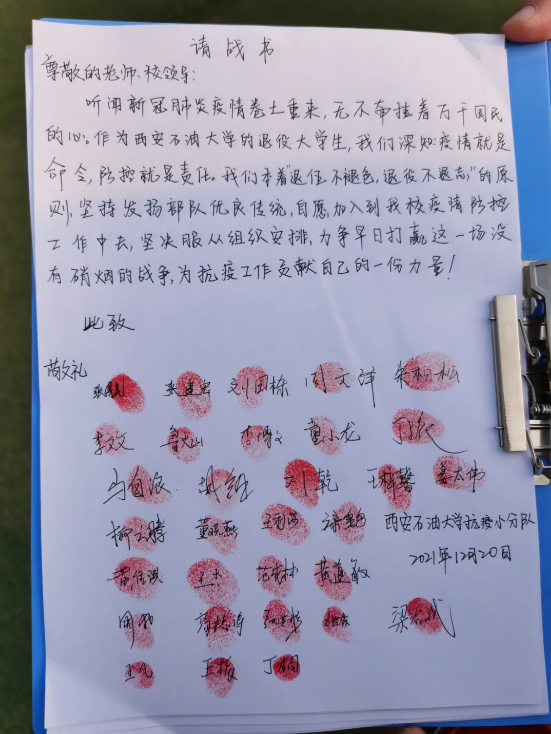 请战书
尊敬的老师、校领导:
听闻新冠肺炎疫情卷土重来,无不牵挂着万千国民
的心。作为西安石油大学的退役大学生,我们深知:疫情就是
命令,防控就是责任。我们本着“退伍不褪色,退役不退志,”的原
则,坚持发扬部队优良传统,自愿加入到我校疫情防控
工作中去,坚决服从组织安排,力争早日打赢这一场没
有硝烟的战争,为抗疫工作贡献自己的一份力量!
此致
敬礼
刘国栋 周文洋 朱桐松
李文 鲁火山 童小龙
刘乾 王雅馨 姜太伟
柳云腾 董晓燕 西安石油大学抗疫小分队
黄道敏 2021年12月20日
王凡 王振 丁相